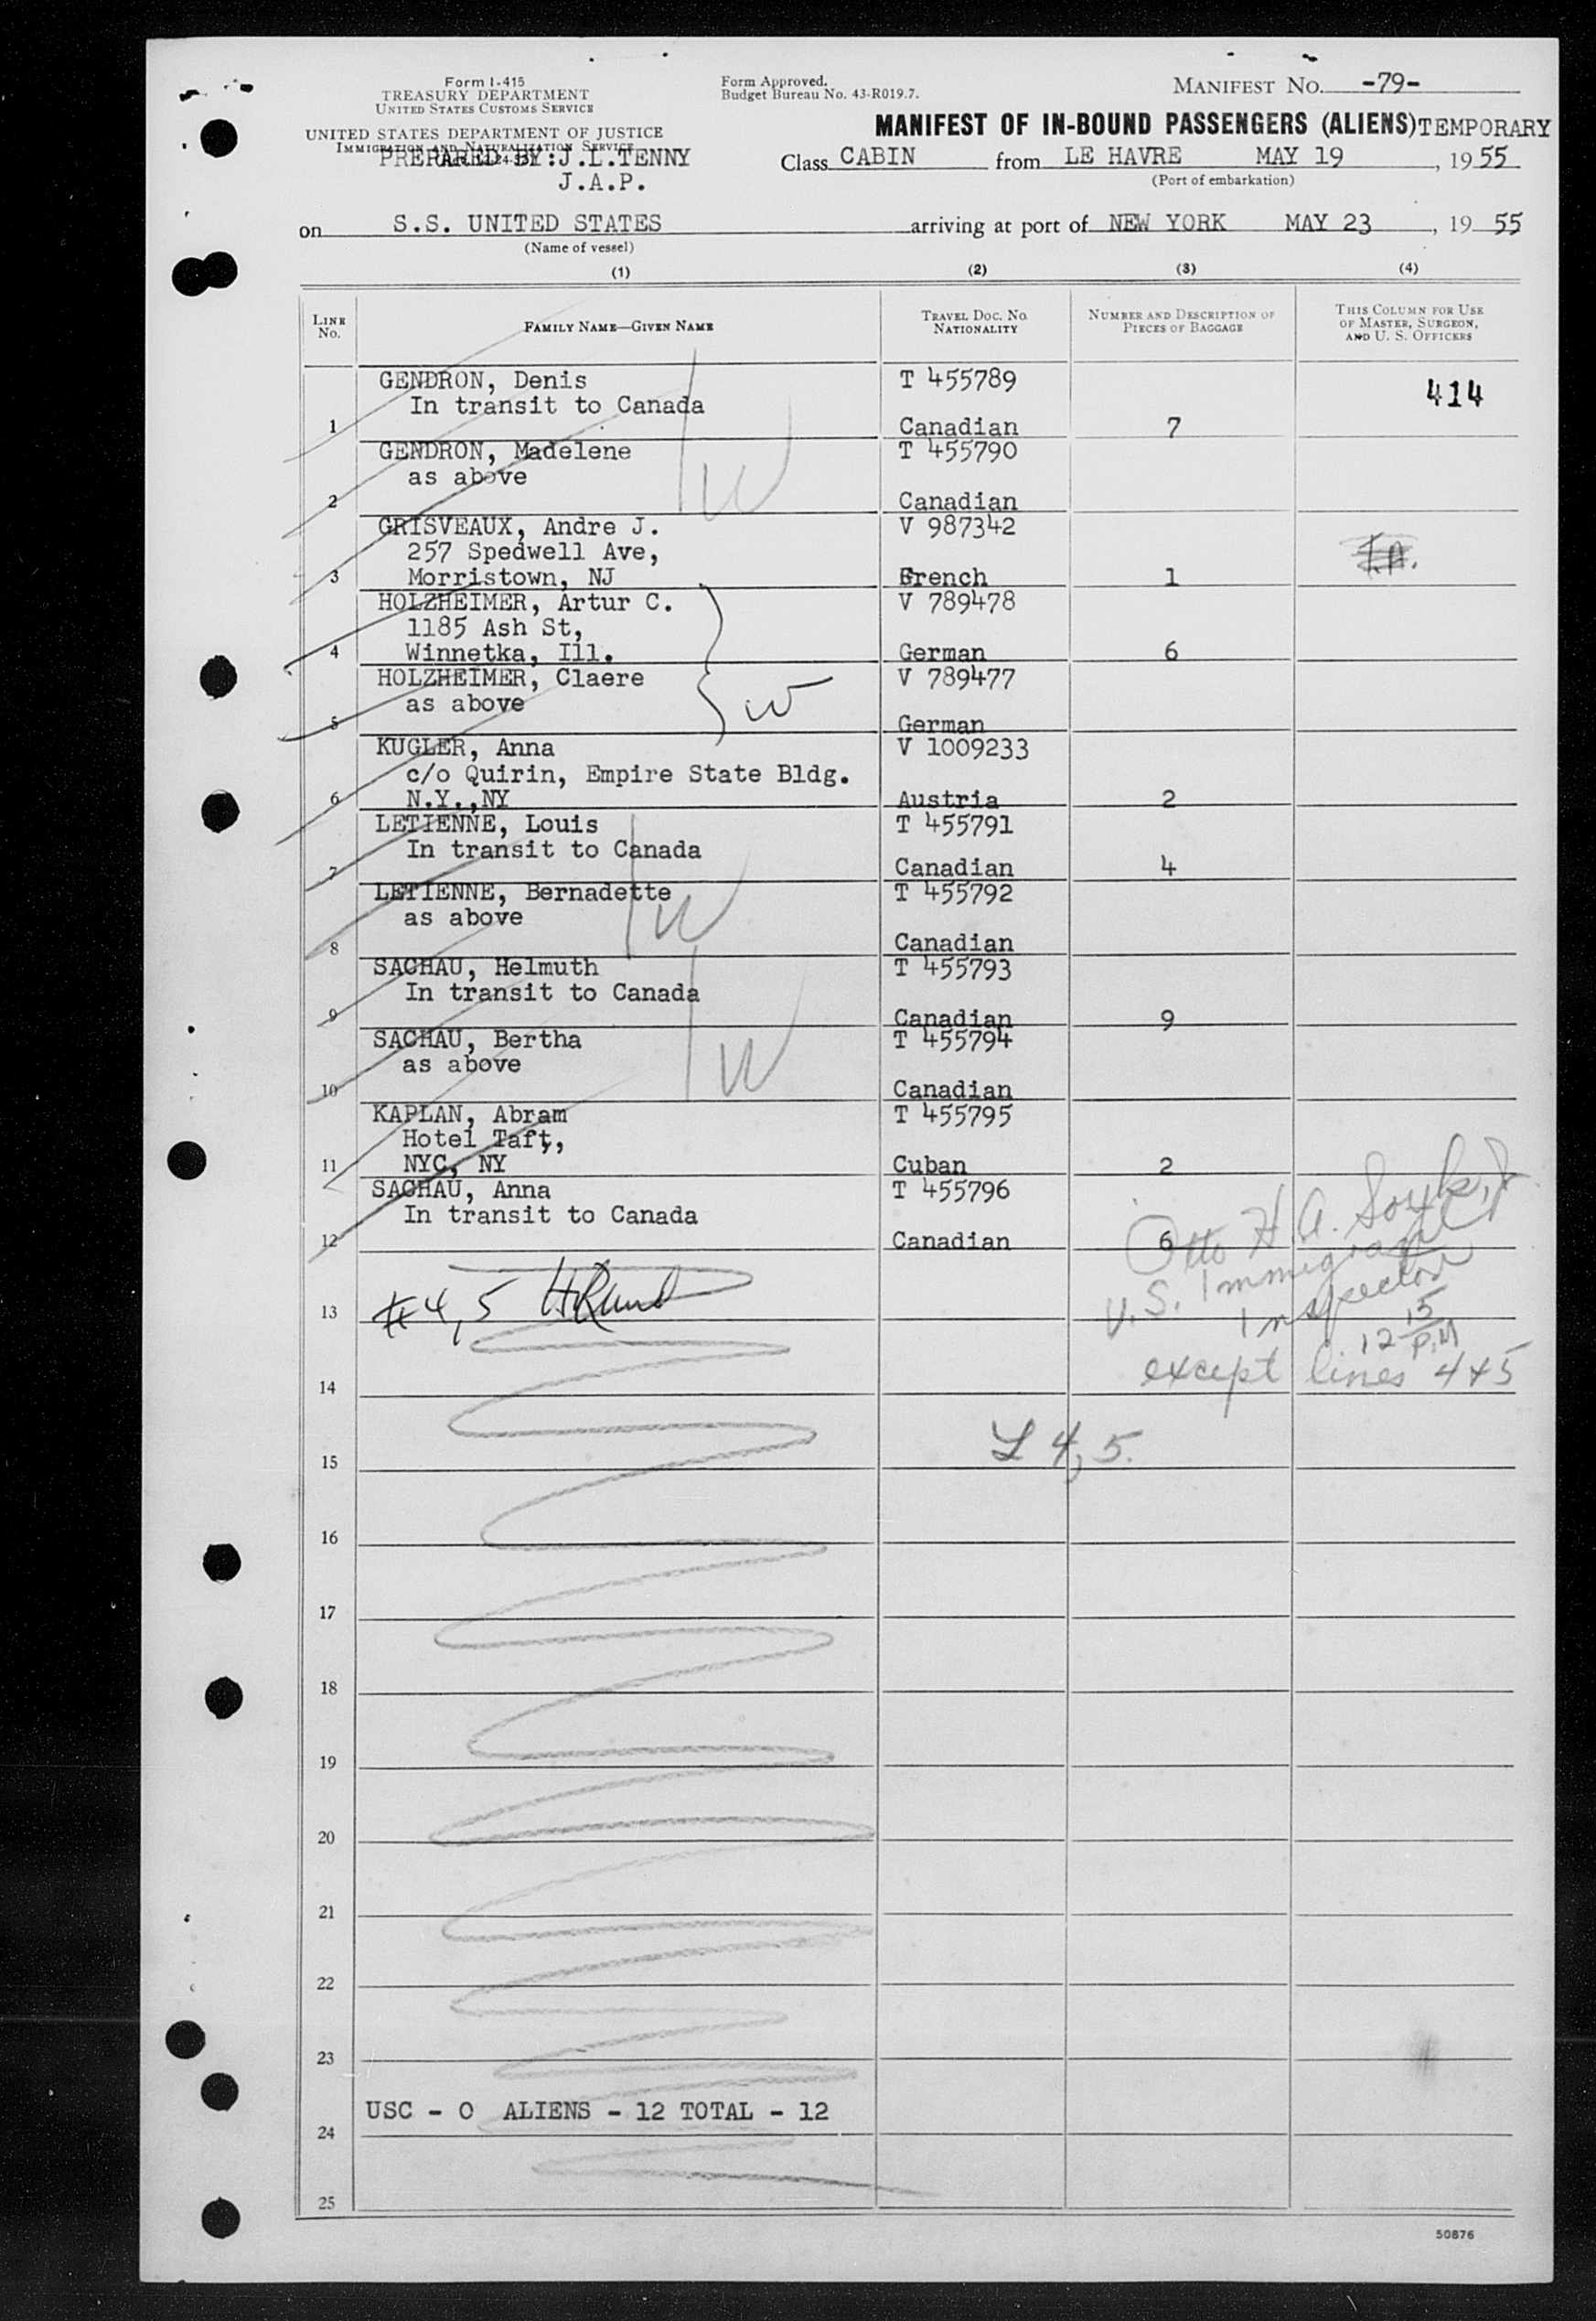 Form I-415
TREASURY DEPARTMENT
UNITED STATES CUSTOMS SERVICE
UNITED STATES DEPARTMENT OF JUSTICE
IMMIGRATION AND NATURALIZATION SERVICE
PREPARED BY:J.L.TENNY
J.A.P.
Form Approved.
Budget Bureau No. 43-R019.7.
MANIFEST NO. -79-
MANIFEST OF IN-BOUND PASSENGERS (ALIENS)TEMPORARY
Class CABIN from LE HAVRE MAY 19, 1955
(Port of embarkation)
on S.S. UNITED STATES arriving at port of NEW YORK MAY 23, 1955
(Name of vessel)
(1) (2) (3) (4)
LINE No. FAMILY NAME—GIVEN NAME TRAVEL DOC. NO. NATIONALITY NUMBER AND DESCRIPTION OF PIECES OF BAGGAGE THIS COLUMN FOR USE OF MASTER, SURGEON, AND U. S. OFFICERS
GENDRON, Denis T 455789 414
In transit to Canada
1 Canadian 7
GENDRON, Madelene T 455790
as above W
2 Canadian
GRISVEAUX, Andre J. V 987342
257 Spedwell Ave,
3 Morristown, NJ French 1
HOLZHEIMER, Artur C. V 789478
1185 Ash St,
4 Winnetka, Ill. German 6
HOLZHEIMER, Claere V 789477
as above W
5 German
KUGLER, Anna V 1009233
c/o Quirin, Empire State Bldg.
6 N.Y.,NY Austria 2
LETIENNE, Louis T 455791
In transit to Canada
7 Canadian 4
LETIENNE, Bernadette T 455792
as above W
8 Canadian
SACHAU, Helmuth T 455793
In transit to Canada
9 Canadian 9
SACHAU, Bertha T 455794
as above W
10 Canadian
KAPLAN, Abram T 455795
Hotel Taft,
11 NYC, NY Cuban 2
SACHAU, Anna T 455796
In transit to Canada
12 Canadian 6
Otto H A.
U.S. Immigrant
Inspector
12 15 P.M
except lines 4+5
13 #4,5
14
L 4,5.
15
16
17
18
19
20
21
22
23
USC - 0 ALIENS - 12 TOTAL - 12
24
25
50876